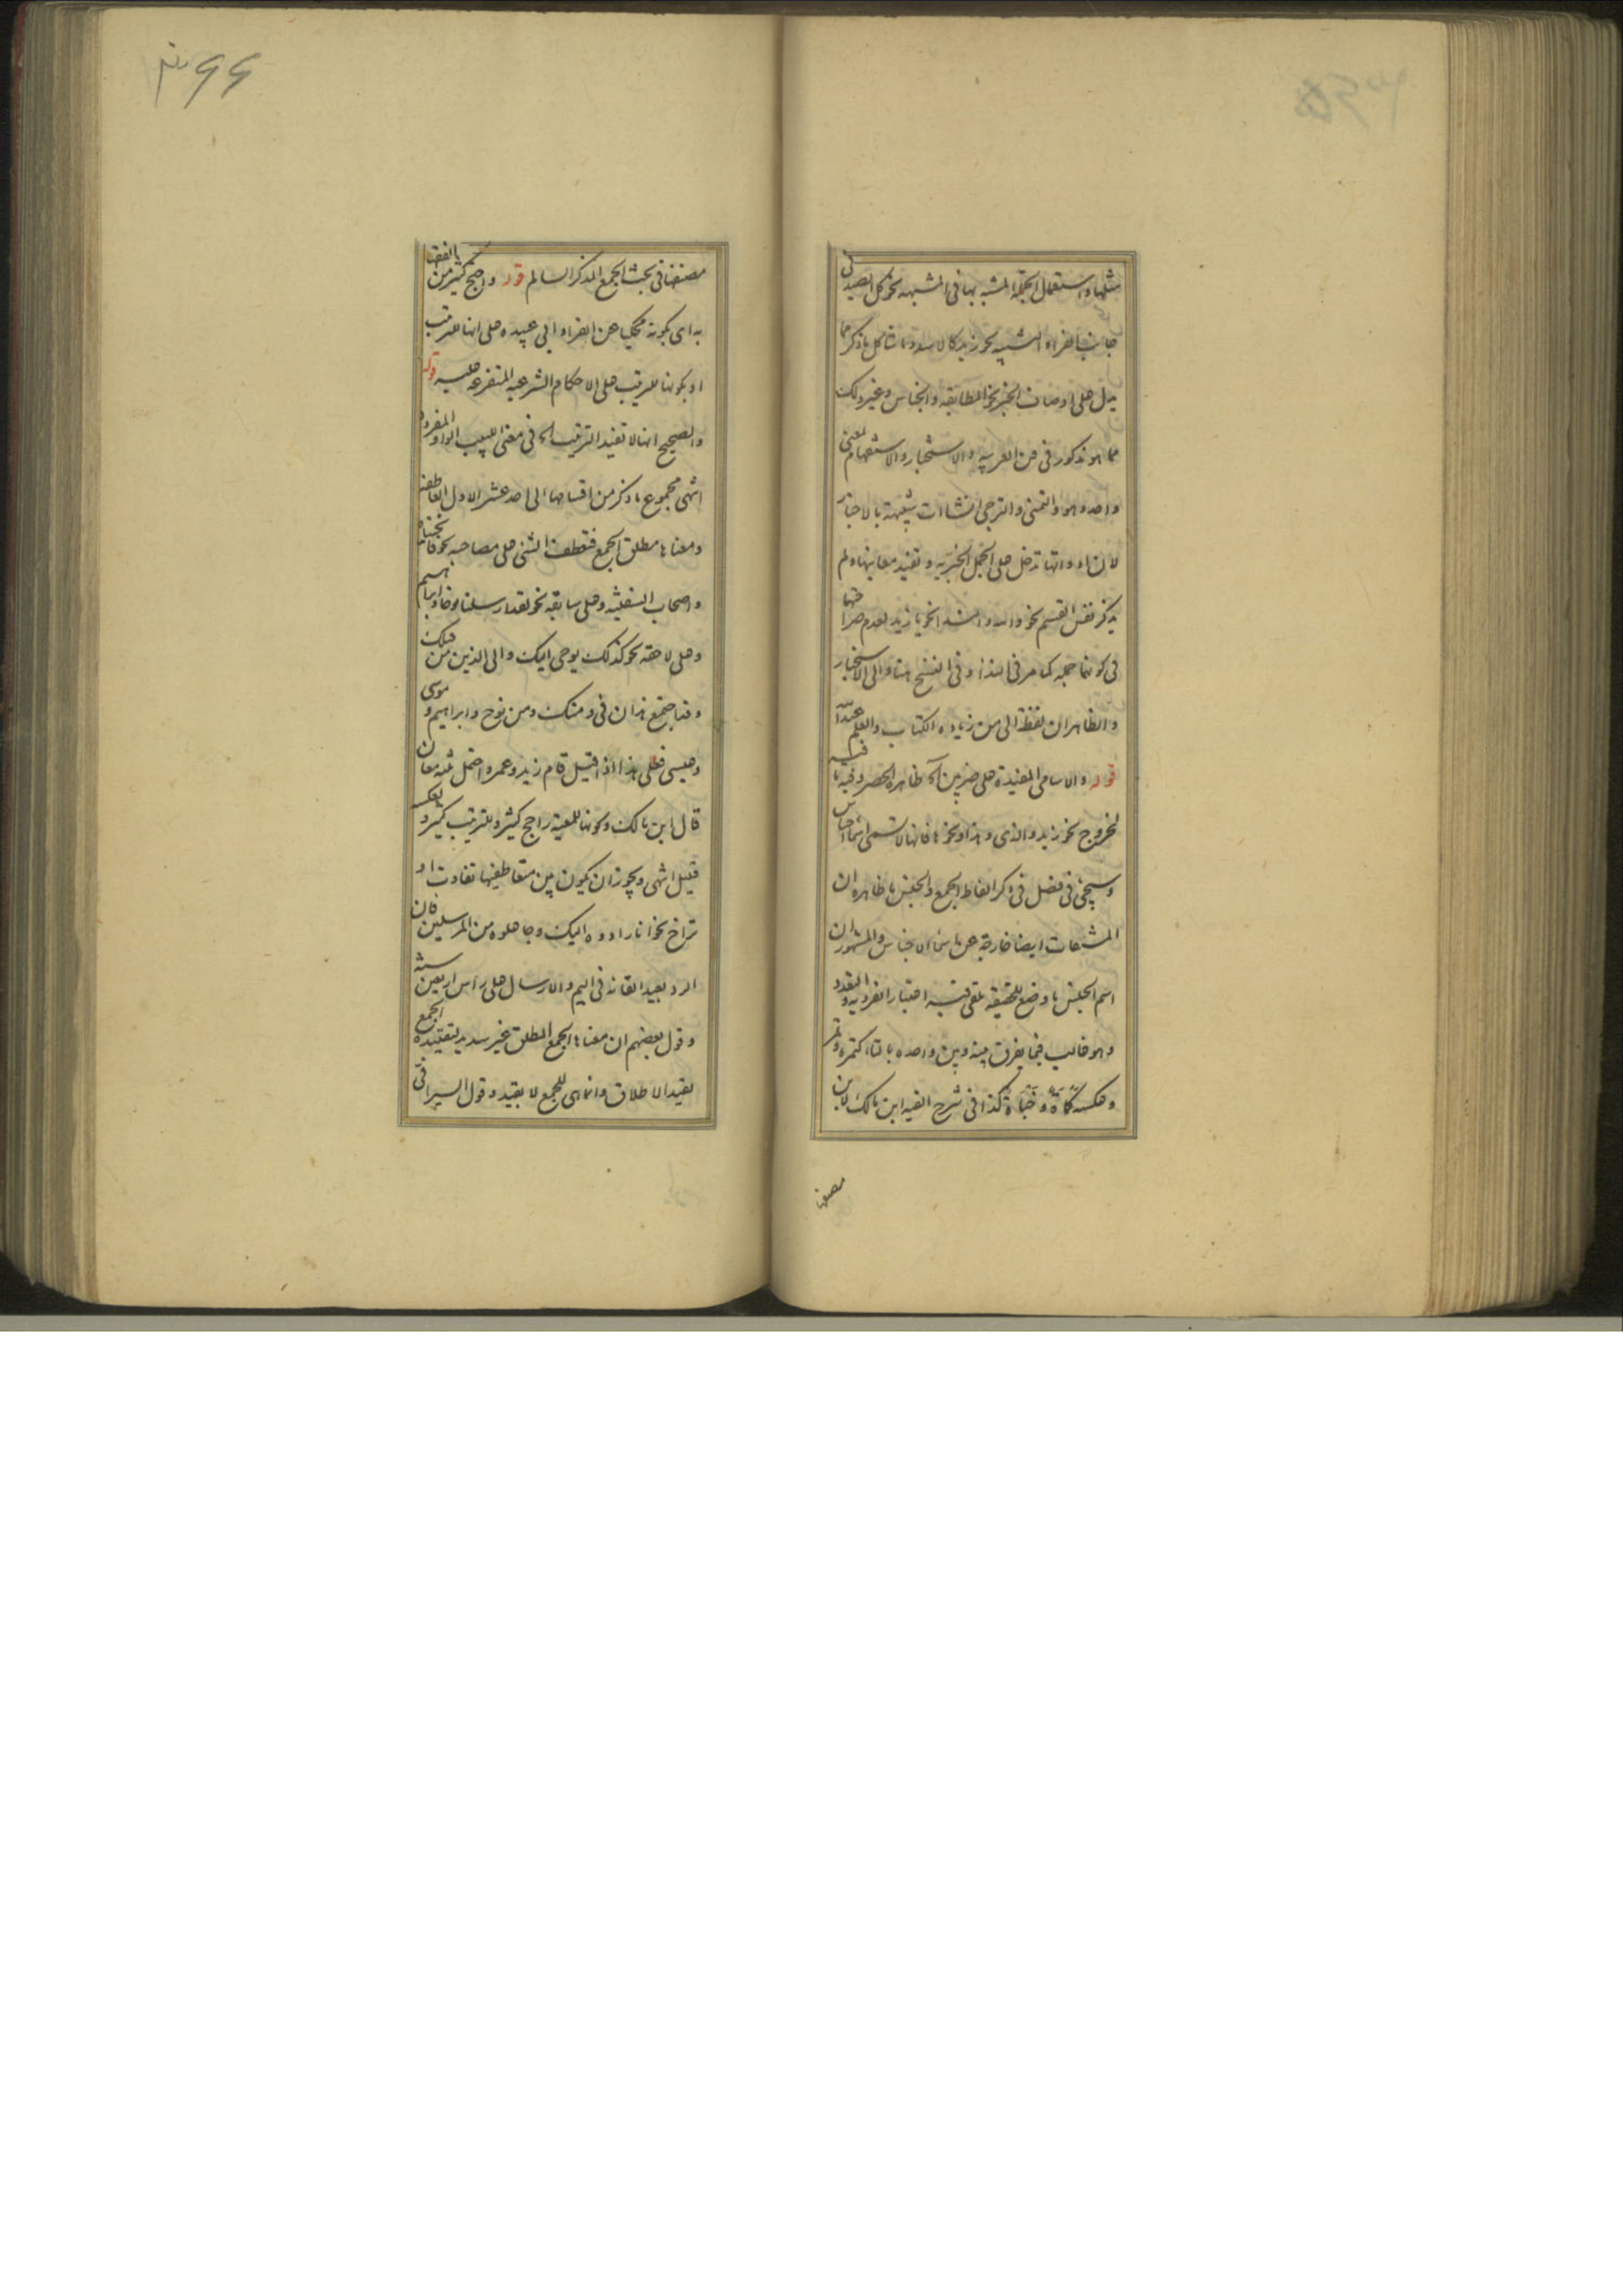 مثلها واستعمال الجملة المشبه بها فى المشبهه نحو كل الصيد فى
جانب الفراء والتشبيه نحو زيد كالاسد وما شاكل ما ذكر مما
يدل على اوصاف الخبر نحو المطابقه والجناس وغير ذلك
مما هو مذكور فى فن العربيه والاستخبار والاستفهام بمعنى
واحد وهو والتمنى والترجى انشاات شبيهة بالاخبار
لان ادواتها تدخل على الجمل الخبريه وتفيد معاينها ولم
يذكر نفس القسم نحو والله والنداء نحو يا زيد لعدم صراحتها
فى كونها جمله كما مر فى النداء وفى النسخ هنا والى الاستخبار
والظاهر ان لفظة الى من زيادة الكتاب والعلم عند الله
قوله والاسامى المفيدة على ضربين الخ ظاهره الحصر وفيه ما فيه
لخروج نحو زيد والذى وهذا ونحوها فانها لا تسمى اسماء اجناس
وسيجئ فى فصل فى ذكر الفاظ الجمع والجنس ما ظاهره ان
المشتقات ايضا خارجة عن اسماء الاجناس والمشهور ان
اسم الجنس ما وضع للحقيقه ملقى فيه اعتبار الفرديه والتعدد
وهو غالب فيما يفرق بينه وبين واحده بالتاء كتمرة وتمر
وعكسه كمأة وخبأة كذا فى شرح الفيه ابن مالك لابن
مصنفها
۳۶۶
مصنفها فى بحث الجمع المذكر السالم قوله واحتج كثير من الفقهاء
به اى بكونه محكيا عن الفراء وابى عبيده على انها للترتيب
او بكونها للترتيب على الاحكام الشرعيه المتفرعه عليه قوله
والصحيح انها لا تفيد الترتيب الخ فى مغنى اللبيب الواو المفردة
انتهى مجموع ما ذكر من اقسامها الى احد عشر الاول العاطفه
ومعناها مطلق الجمع فتعطف الشئ على مصاحبه نحو فانجيناه
واصحاب السفينه وعلى سابقه نحو لقد ارسلنا نوحا وابراهيم
وعلى لاحقه نحو كذلك يوحى اليك والى الذين من قبلك
وقد اجتمع هذان فى ومنك ومن نوح وابراهيم وموسى
وعيسى فعلى هذا اذا قيل قام زيد وعمرو احتمل ثلثه معان
قال ابن مالك وكونها للمعية راجح كثير وللترتيب كثير ولعكسه
قليل انتهى ويجوز ان يكون بين متعاطفيها تقارب او
تراخ نحو انا رادوه اليك وجاعلوه من المرسلين فان
الرد بعيد القائه فى اليم والارسال على راس اربعين سنة
وقول بعضهم ان معناها الجمع المطلق غير سديد لتقييده الجمع
بقيد الاطلاق وانما هى للجمع لا بقيد وقول السيرافى